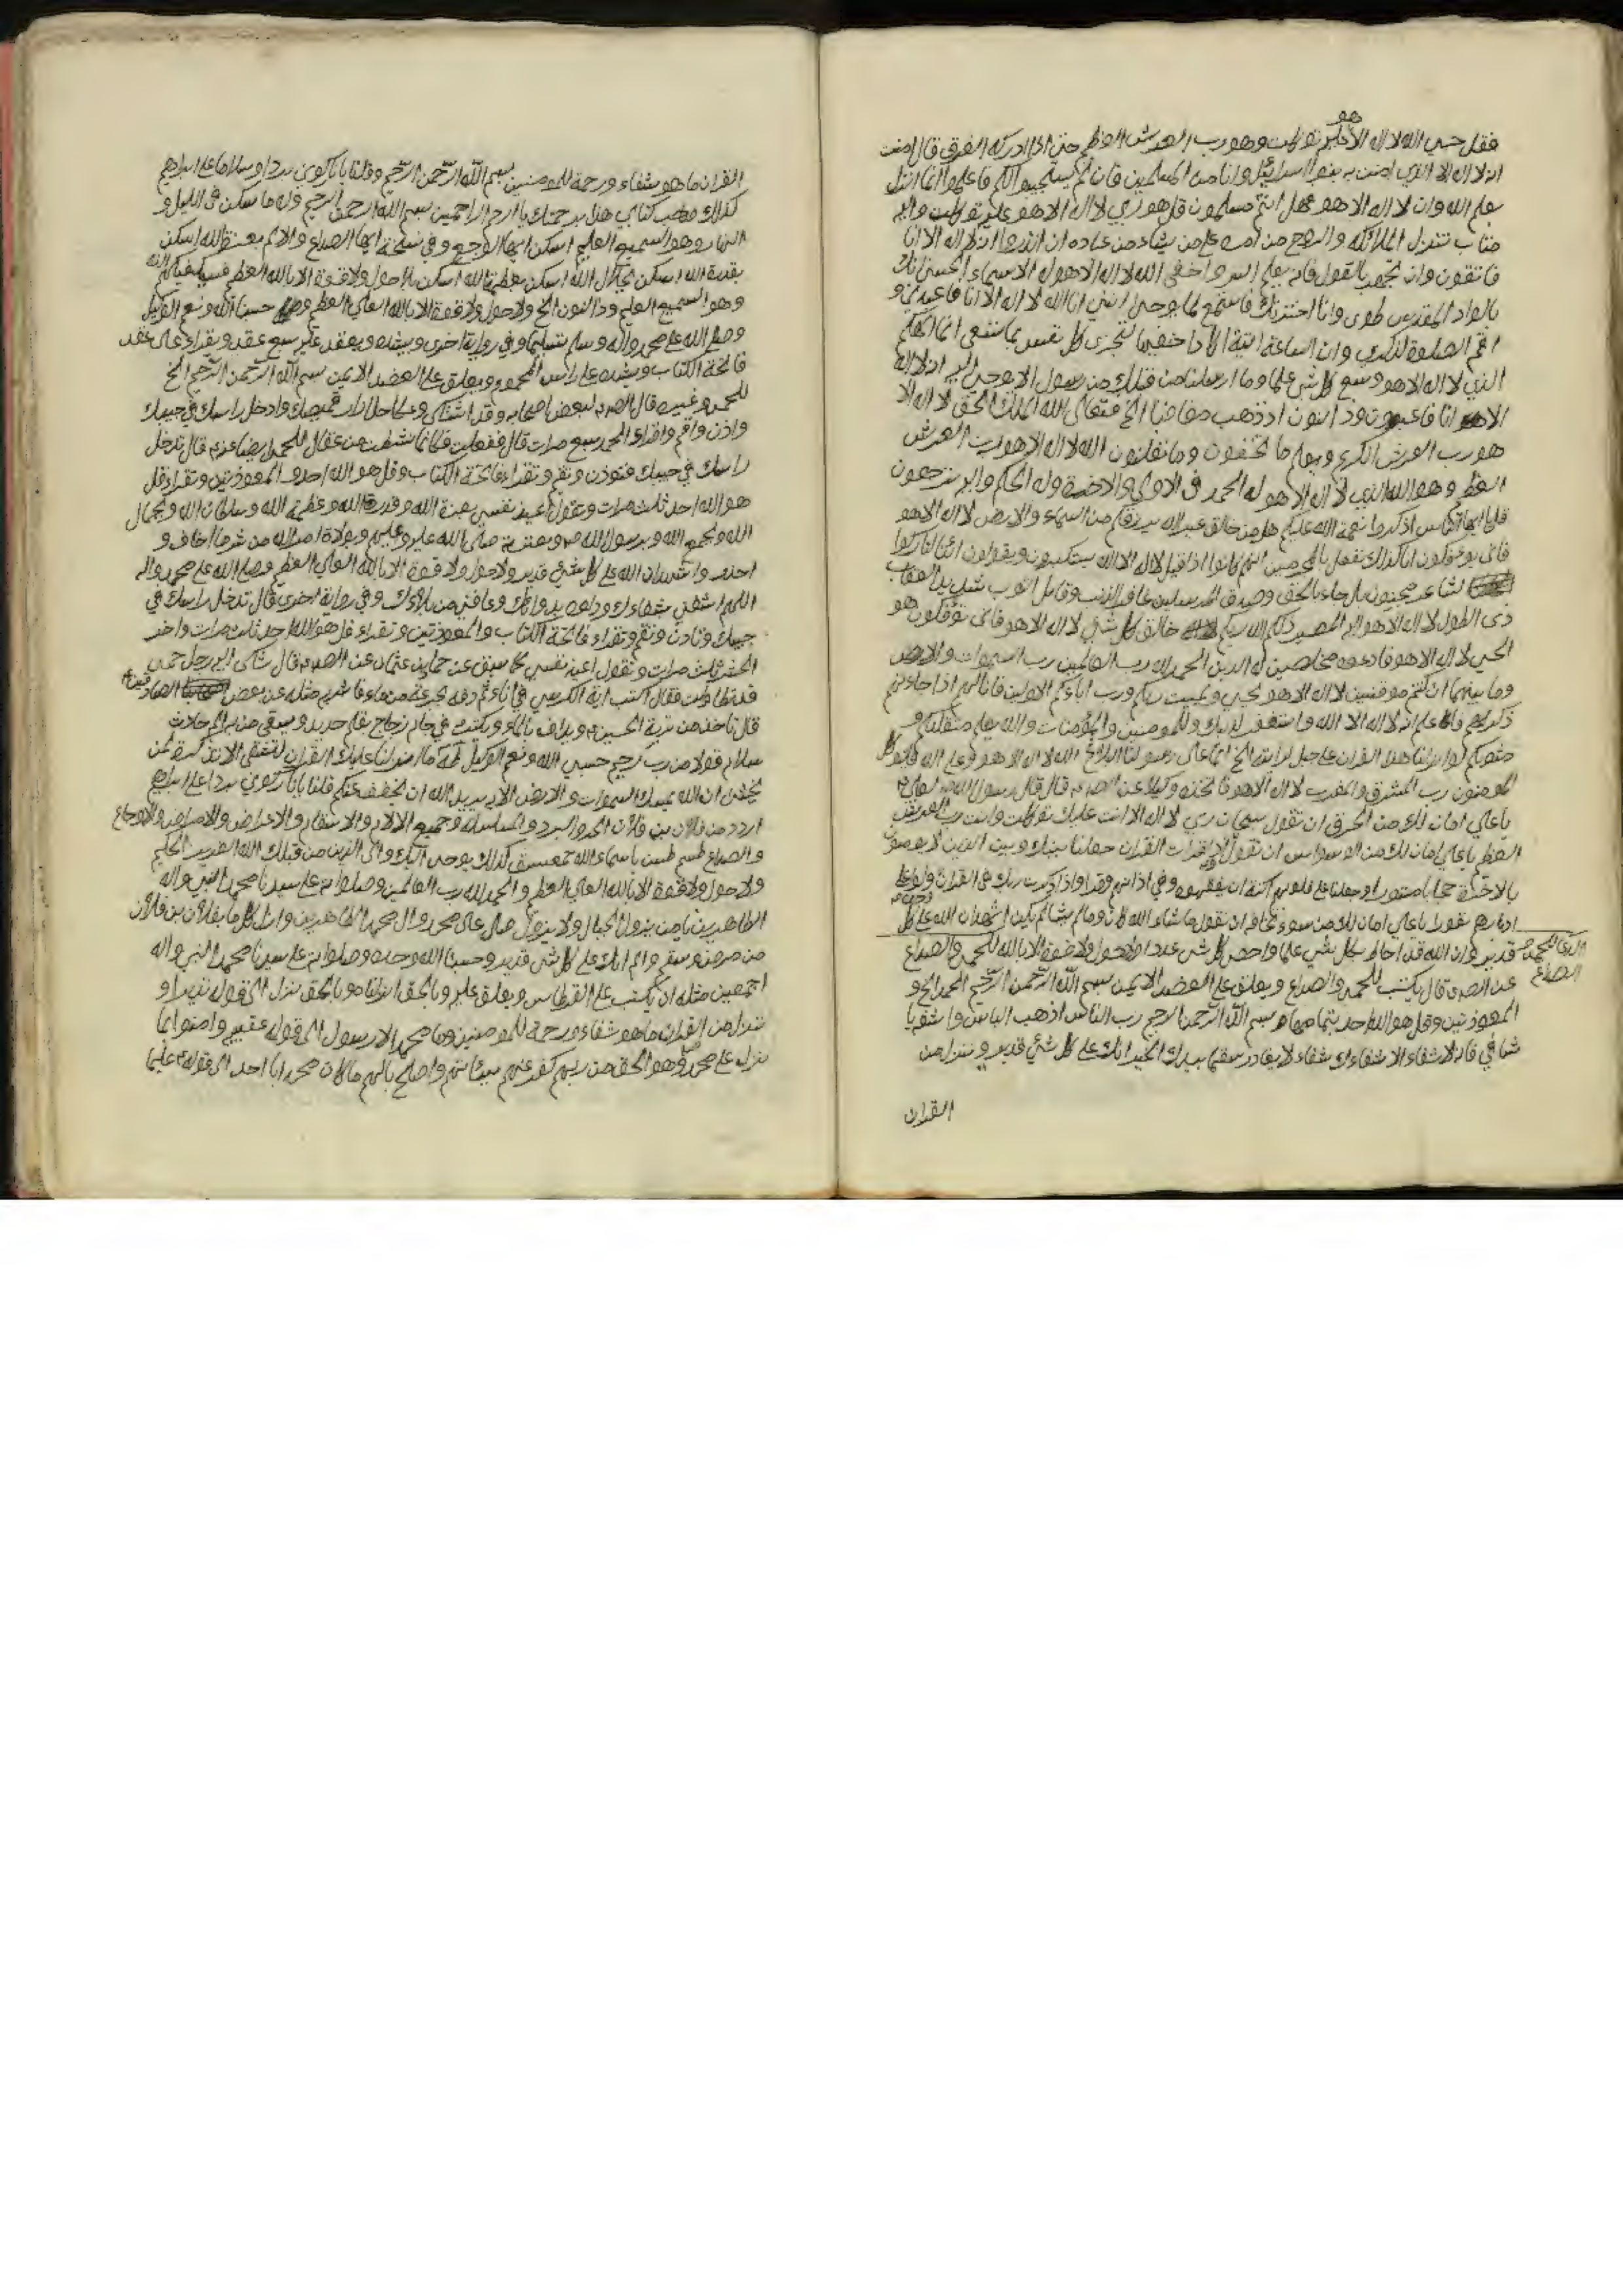 هو
فقل حسبي الله لا اله الا عليه توكلت وهو رب العرش العظيم حتى اذا ادركه الغرق قال امنت
انه لا اله الا الذي امنت به بنو اسرائيل وانا من المسلمين فان لم يستجيبوا لكم فاعلموا انما انزل
بعلم الله وان لا اله الا هو فهل انتم مسلمون قل هو ربي لا اله الا هو عليه توكلت واليه
متاب تنزل الملائكة والروح من امره على من يشاء من عباده ان انذروا انه لا اله الا انا
فاتقون وان تجهر بالقول فانه يعلم السر واخفى الله لا اله الا هو له الاسماء الحسنى انك
بالواد المقدس طوى وانا اخترتك فاستمع لما يوحى انني انا الله لا اله الا انا فاعبدني و
اقم الصلوة لذكري وان الساعة اتية اكاد اخفيها لتجزى كل نفس بما تسعى انما الهكم
الذي لا اله الا هو وسع كل شئ علما وما ارسلنا من قبلك من رسول الا يوحى اليه انه لا اله
الا انا فاعبدون وذا النون اذ ذهب مغاضبا الخ فتعالى الله الملك الحق لا اله الا
هو رب العرش الكريم ويعلم ما تخفون وما تعلنون الله لا اله الا هو رب العرش
العظيم وهو الله الذي لا اله الا هو له الحمد في الاولى والاخرة وله الحكم واليه ترجعون
قل يا ايها الناس اذكروا نعمة الله عليكم هل من خالق غير الله يرزقكم من السماء والارض لا اله الا هو
فانى يؤفكون انا كذلك نفعل بالمجرمين انهم كانوا اذا قيل لا اله الا الله يستكبرون ويقولون ائنا لتاركوا
لشاعر مجنون بل جاء بالحق وصدق المرسلين غافر الذنب وقابل التوب شديد العقاب
ذى الطول لا اله الا هو اليه المصير ذلكم الله ربكم خالق كل شئ لا اله الا هو فانى تؤفكون هو
الحي لا اله الا هو فادعوه مخلصين له الدين الحمد لله رب العالمين رب السموات والارض
وما بينهما ان كنتم موقنين لا اله الا هو يحيي ويميت ربكم ورب ابائكم الاولين فانى لهم اذا جاءتهم
ذكراهم فاعلم انه لا اله الا الله واستغفر لذنبك وللمومنين والمؤمنات والله يعلم متقلبكم و
مثويكم لو انزلنا هذا القران على جبل لرايته الخ انما على رسولنا البلاغ الله لا اله الا هو وعلى الله فليتوكل
المومنون رب المشرق والمغرب لا اله الا هو فاتخذه وكيلا عن قال قال رسول الله لعلي
يا علي امان لك من الحرق ان تقول سبحان ربي لا اله الا انت عليك توكلت وانت رب العرش
العظيم يا علي امان لك من الوسواس ان تقول اذا قرات القران جعلنا بينك وبين الذين لا يومنون
بالاخرة حجابا مستورا وجعلنا على قلوبهم اكنة ان يفقهوه وفي اذانهم وقرا واذا ذكرت ربك في القران ولوا على
ادبارهم نفورا يا علي امان لك من سوء ان تقول ما شاء الله كان وما لم يشا لم يكن اشهد ان الله على كل
قدير وان الله قد احاط بكل شئ علما واحصى كل شئ عددا ولا حول ولا قوة الا بالله للحمى والصداع
الصداع
عن قال يكتب للحمى والصداع ويعلق على العضد الايمن بسم الله الرحمن الرحيم الحمد الخ و
المعوذتين وقل هو الله احد بتمامها بسم الله الرحمن الرحيم رب الناس اذهب الباس واشف يا
شافي فانه لا شفاء الا شفاءك شفاء لا يغادر سقما بيدك الخير انك على كل شئ قدير وننزل من
القران
القران ما هو شفاء ورحمة للمومنين بسم الله الرحمن الرحيم وقلنا يا نار كوني بردا وسلاما على ابراهيم
كذلك كتابي هذا برحمتك يا ارحم الراحمين بسم الله الرحمن الرحيم وله ما سكن في الليل و
النهار وهو السميع العليم اسكن ايها الوجع وفي نسخة ايها الصداع والالم بعزة الله اسكن
بقدرة الله اسكن بجلال الله اسكن بعظمة الله اسكن بلا حول ولا قوة الا بالله العظيم فسيكفيكهم الله
وهو السميع العليم وذا النون الخ ولا حول ولا قوة الا بالله العلي العظيم حسبنا الله ونعم الوكيل
وصلى الله على محمد واله وسلم تسليما وفي رواية اخرى ويشده ويعقد عليه سبع عقد ويقراء على كل عقد
فاتحة الكتاب ويشده على راس المحموم ويعلق على العضد الايمن بسم الله الرحمن الرحيم الخ
للحمى وغيره قال لبعض اصحابه وقد اشتكى وعكا حل ازرار قميصك وادخل راسك في جيبك
واذن واقم واقراء الحمد سبع مرات قال ففعلت فكانما نشطت من عقال للحمى ايضا عنه قال تدخل
راسك في جيبك فتوذن وتقيم وتقراء فاتحة الكتاب وقل هو الله احد والمعوذتين وتقراء قل
هو الله احد ثلث مرات وتقول اعيذ نفسي بعزة الله وقدرة الله وعظمة الله وسلطان الله وبجمال
الله وبجمع الله وبرسول الله وبعترته صلى الله عليه وعليهم وبولاة امر الله من شر ما اخاف و
احذر واشهد ان الله على كل شئ قدير ولا حول ولا قوة الا بالله العلي العظيم وصلى الله على محمد واله
اللهم اشفني بشفاءك وداوني بدوائك وعافني من بلاءك وفي رواية اخرى قال تدخل راسك في
جيبك وتاذن وتقيم وتقراء فاتحة الكتاب والمعوذتين وتقراء قل هو الله احد ثلث مرات واخر
الحشر ثلث مرات وتقول اعيذ نفسي كما سبق عن حماد بن عثمان عن قال شكى اليه رجل حمى
قد تطاولت فقال اكتب اية الكرسي في اناء ثم دفه بجرعة من ماء فاشربه مثله عن بعض الصادقين
قال تاخذ من تربة الحسين ويداف بالماء ويكتب في جام زجاج بقلم حديد ويسقى من به
سلام قولا من رب رحيم حسبي الله ونعم الوكيل طه ما انزلنا عليك القران لتشقى الا تذكرة لمن
يخشى ان الله يمسك السموات والارض الاية يريد الله ان يخفف عنكم قلنا يا نار كوني بردا على ابراهيم
اردد من فلان بن فلان الحر والبرد والمليلة وجميع الالام والاسقام والاعراض والامراض والاوجاع
والصداع طسم طس باسماء الله حمعسق كذلك يوحي اليك والى الذين من قبلك الله العزيز الحكيم
ولا حول ولا قوة الا بالله العلي العظيم والحمد لله رب العالمين وصلواته على سيدنا محمد النبي واله
الطاهرين يا من يزول الجبال ولا يزول صل على محمد وال محمد الطاهرين وازل كل ما بفلان بن فلان
من مرض وسقم والم انك على كل شئ قدير وحسبنا الله وحده وصلواته على سيدنا محمد النبي واله
اجمعين مثله ان يكتب على القرطاس ويعلق عليه وبالحق انزلناه وبالحق نزل الى قوله نذيرا و
ننزل من القران ما هو شفاء ورحمة للمومنين وما محمد الا رسول الى قوله وامنوا بما
نزل على محمد وهو الحق من ربهم كفر عنهم سيئاتهم واصلح بالهم ما كان محمد ابا احد الى قوله عليما